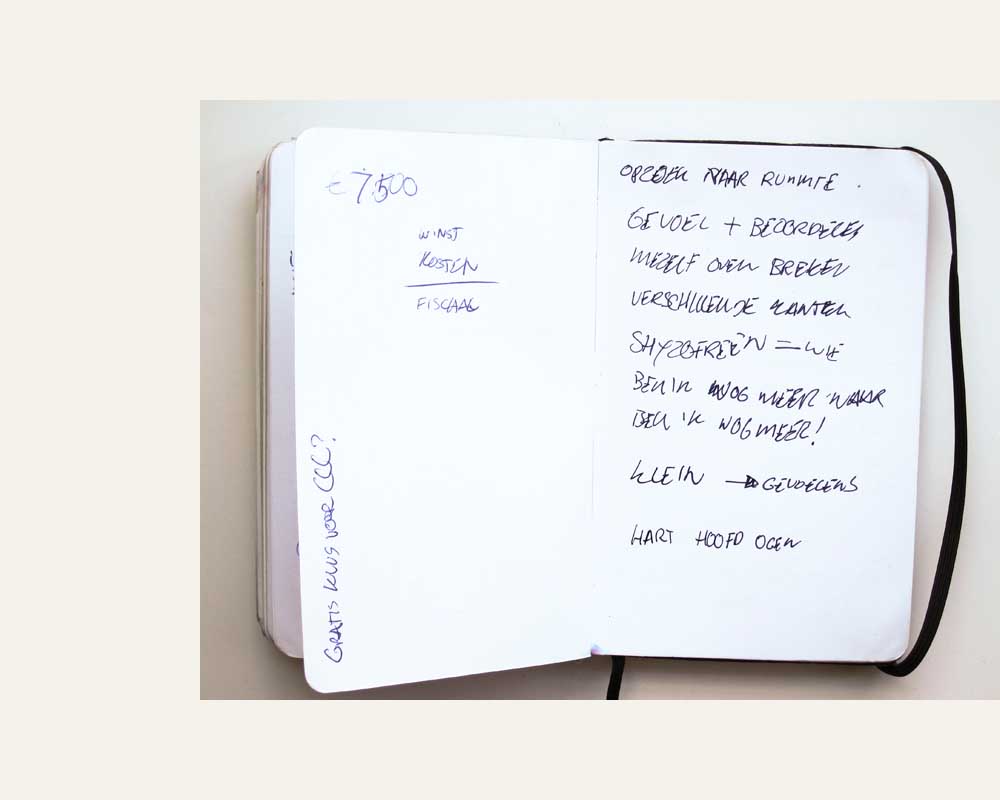 € 7.500
WINST
KOSTEN
FISCAAL
GRATIS KLUS VOOR CCC?
OPZOEK NAAR RUIMTE .
GEVOEL + BEOORDELEN
MEZELF OVER BREKEN
VERSCHILLENDE KANTEN
= WIE
BEN IK NOG MEER WAAR
BEN IK NOG MEER!
KLEIN → GEVOELENS
HART HOOFD OGEN